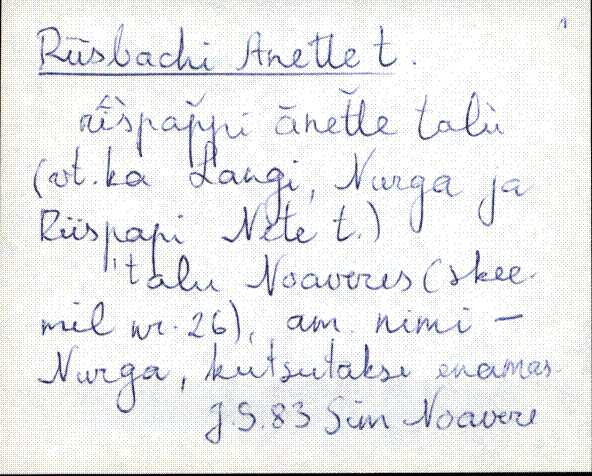 Riisbachi Anette t.
rīspappi ānetle talù
(vt.ka Langi, Nurga ja
Riispapi Nete t.)
'talu Noaveres (skee-
mil nr. 26), am. nimi –
Nurga, kutsutakse enamas
J.S.83 Sim Noavere